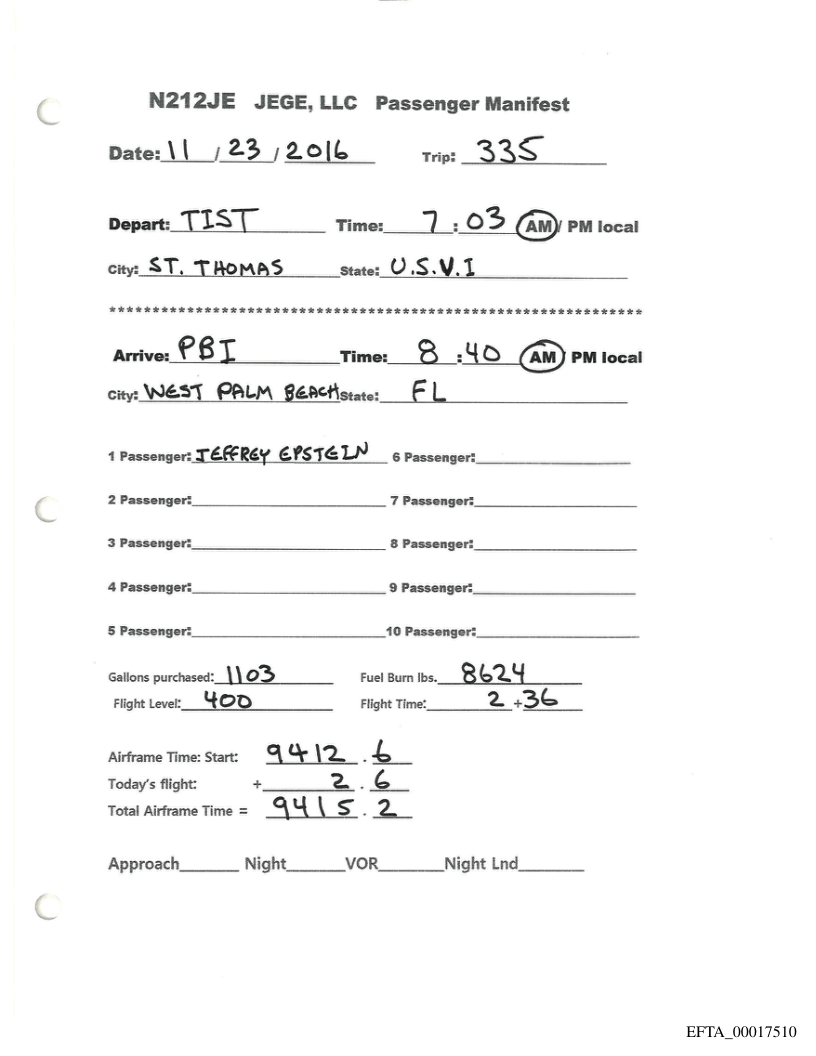 N212JE JEGE, LLC Passenger Manifest
Date: 11 / 23 / 2016 Trip: 335
Depart: TIST Time: 7 : 03 AM / PM local
City: ST. THOMAS State: U.S.V.I
******************************************************************
Arrive: PBI Time: 8 : 40 AM / PM local
City: WEST PALM BEACH State: FL
1 Passenger: JEFFREY EPSTEIN 6 Passenger:
2 Passenger: 7 Passenger:
3 Passenger: 8 Passenger:
4 Passenger: 9 Passenger:
5 Passenger: 10 Passenger:
Gallons purchased: 1103 Fuel Burn lbs. 8624
Flight Level: 400 Flight Time: 2 + 36
Airframe Time: Start: 9412 . 6
Today's flight: + 2 . 6
Total Airframe Time = 9415 . 2
Approach Night VOR Night Lnd
EFTA_00017510